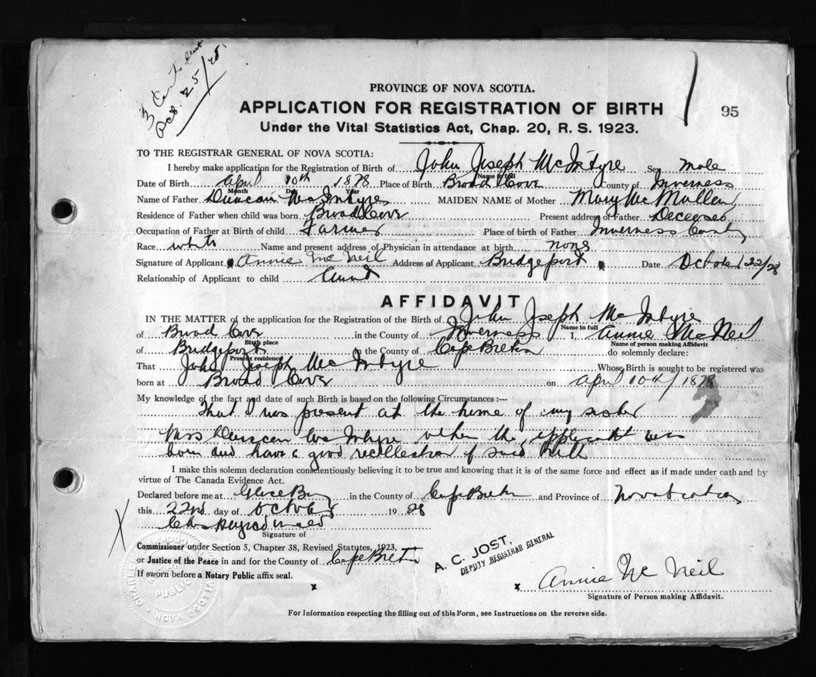 Oct. 25/28.
95
PROVINCE OF NOVA SCOTIA.
APPLICATION FOR REGISTRATION OF BIRTH
Under the Vital Statistics Act, Chap. 20, R. S. 1923.
TO THE REGISTRAR GENERAL OF NOVA SCOTIA:
I hereby make application for the Registration of Birth of John Joseph McIntyre Sex male
Name in full
Date of Birth April 10th 1878 Place of Birth Broad Cove County of Inverness
Month Day Year
Name of Father Duncan McIntyre MAIDEN NAME of Mother Mary McMullen
Residence of Father when child was born Broad Cove Present address of Father Deceased
Occupation of Father at Birth of child Farmer Place of birth of Father Inverness County
Race white Name and present address of Physician in attendance at birth none
Signature of Applicant Annie McNeil Address of Applicant Bridgeport Date October 22/28
Relationship of Applicant to child Aunt
AFFIDAVIT
IN THE MATTER of the application for the Registration of the Birth of John Joseph McIntyre
Name in full
of Broad Cove in the County of Inverness I, Annie McNeil
Birth place Name of person making Affidavit
of Bridgeport in the County of Cape Breton do solemnly declare:
Present residence
That John Joseph McIntyre Whose Birth is sought to be registered was
born at Broad Cove on April 10th/1878
My knowledge of the fact and date of such Birth is based on the following Circumstances :—
That I was present at the home of my sister
Mrs Duncan McIntyre when the applicant was
born and have a good recollection of said birth
I make this solemn declaration conscientiously believing it to be true and knowing that it is of the same force and effect as if made under oath and by
virtue of The Canada Evidence Act.
Declared before me at Glace Bay in the County of Cape Breton and Province of Nova Scotia
this 22nd day of October 1928
Signature of
Commissioner under Section 5, Chapter 38, Revised Statutes, 1923,
or Justice of the Peace in and for the County of Cape Breton
If sworn before a Notary Public affix seal.
A. C. JOST,
DEPUTY REGISTRAR GENERAL
x
x Annie McNeil
Signature of Person making Affidavit.
For Information respecting the filling out of this Form, see Instructions on the reverse side.